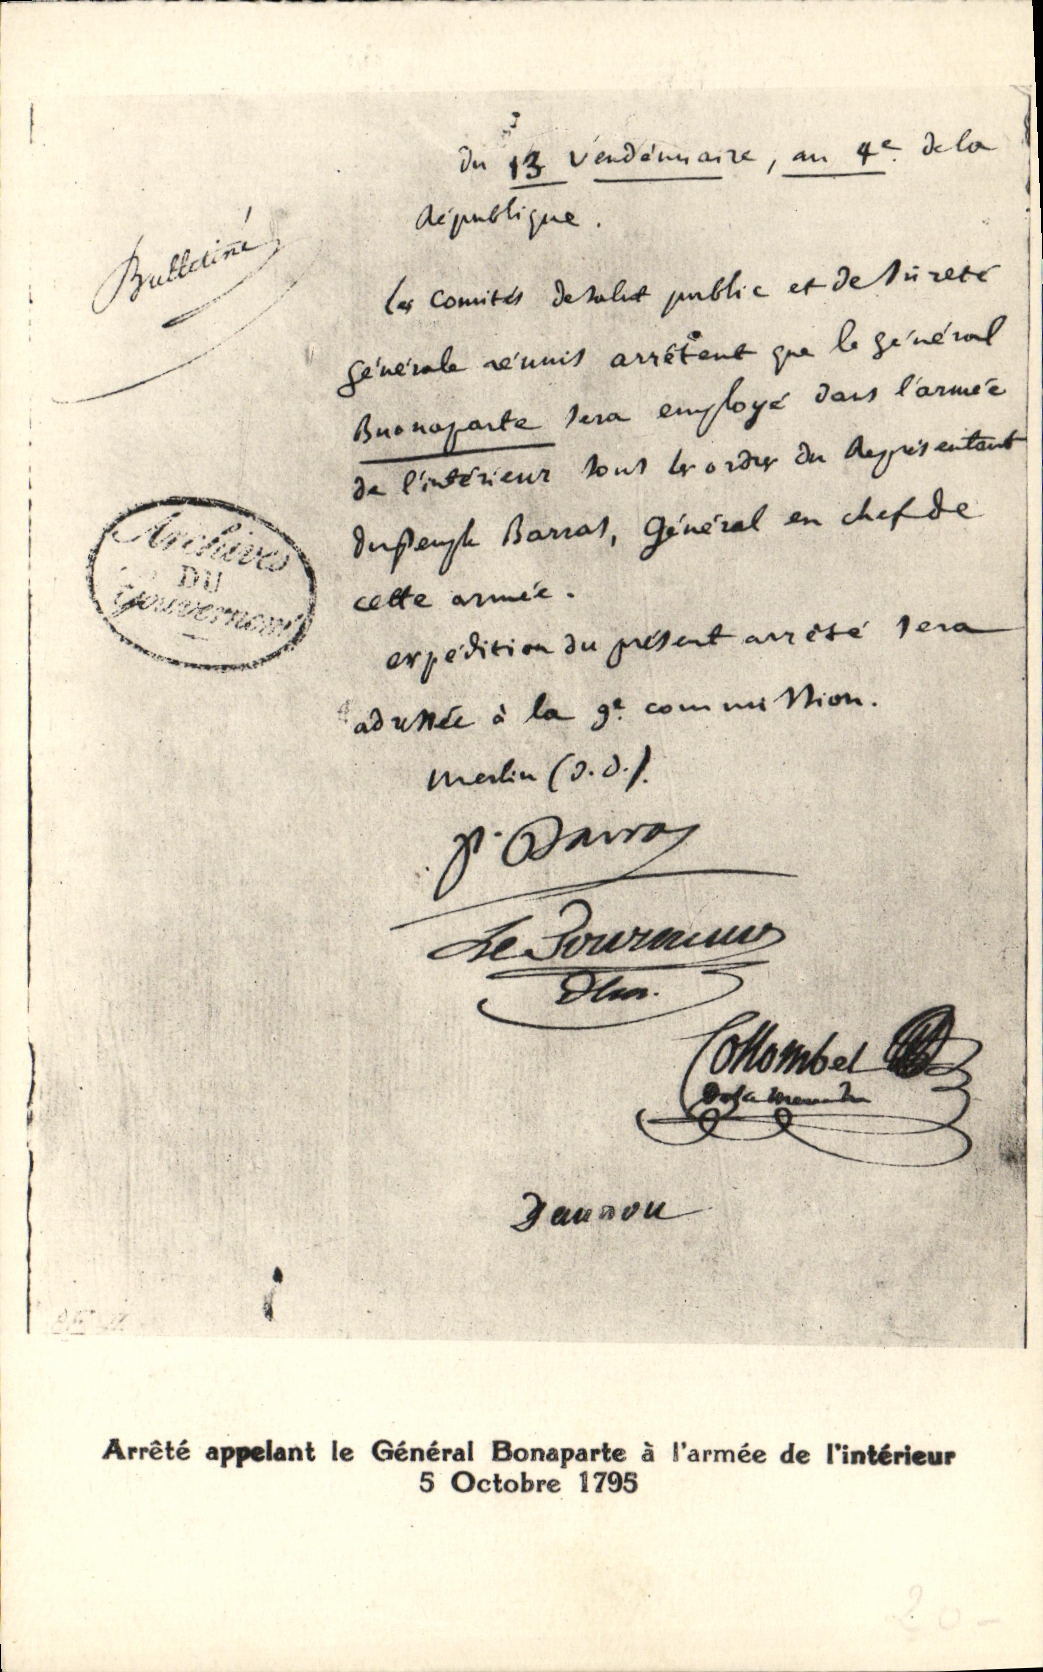 du 13 Vendémiaire, an 4e. de la
République.
Bulletiné
Les Comités de Salut public et de Sûreté
générale réunis arrêtent que le général
Buonaparte sera employé dans l'armée
de l'intérieur sous les ordres du Représentant
du Peuple Barras, Général en chef de
cette armée.
Archives
DU
Gouvernemt
expédition du présent arrêté sera
adressée à la 9e. commission.
Merlin (d. d.).
P. Barras
Le Tourneur
Collombel
de la Meurthe
Daunou
Arrêté appelant le Général Bonaparte à l'armée de l'intérieur
5 Octobre 1795
20-